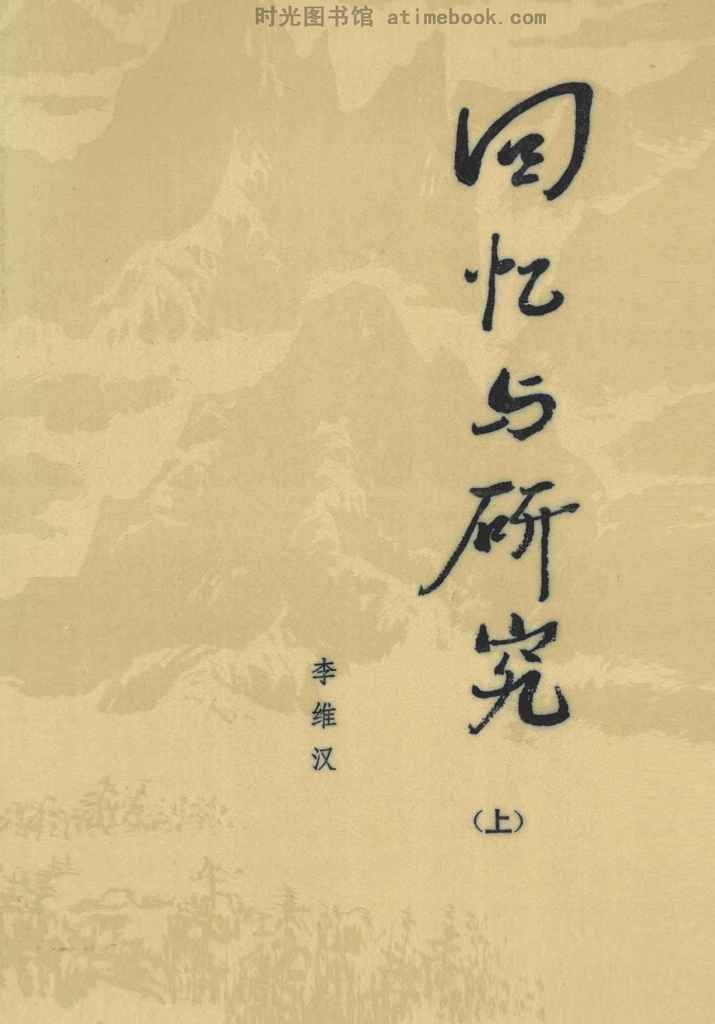 时光图书馆 atimebook.com
回忆与研究
（上）
李维汉